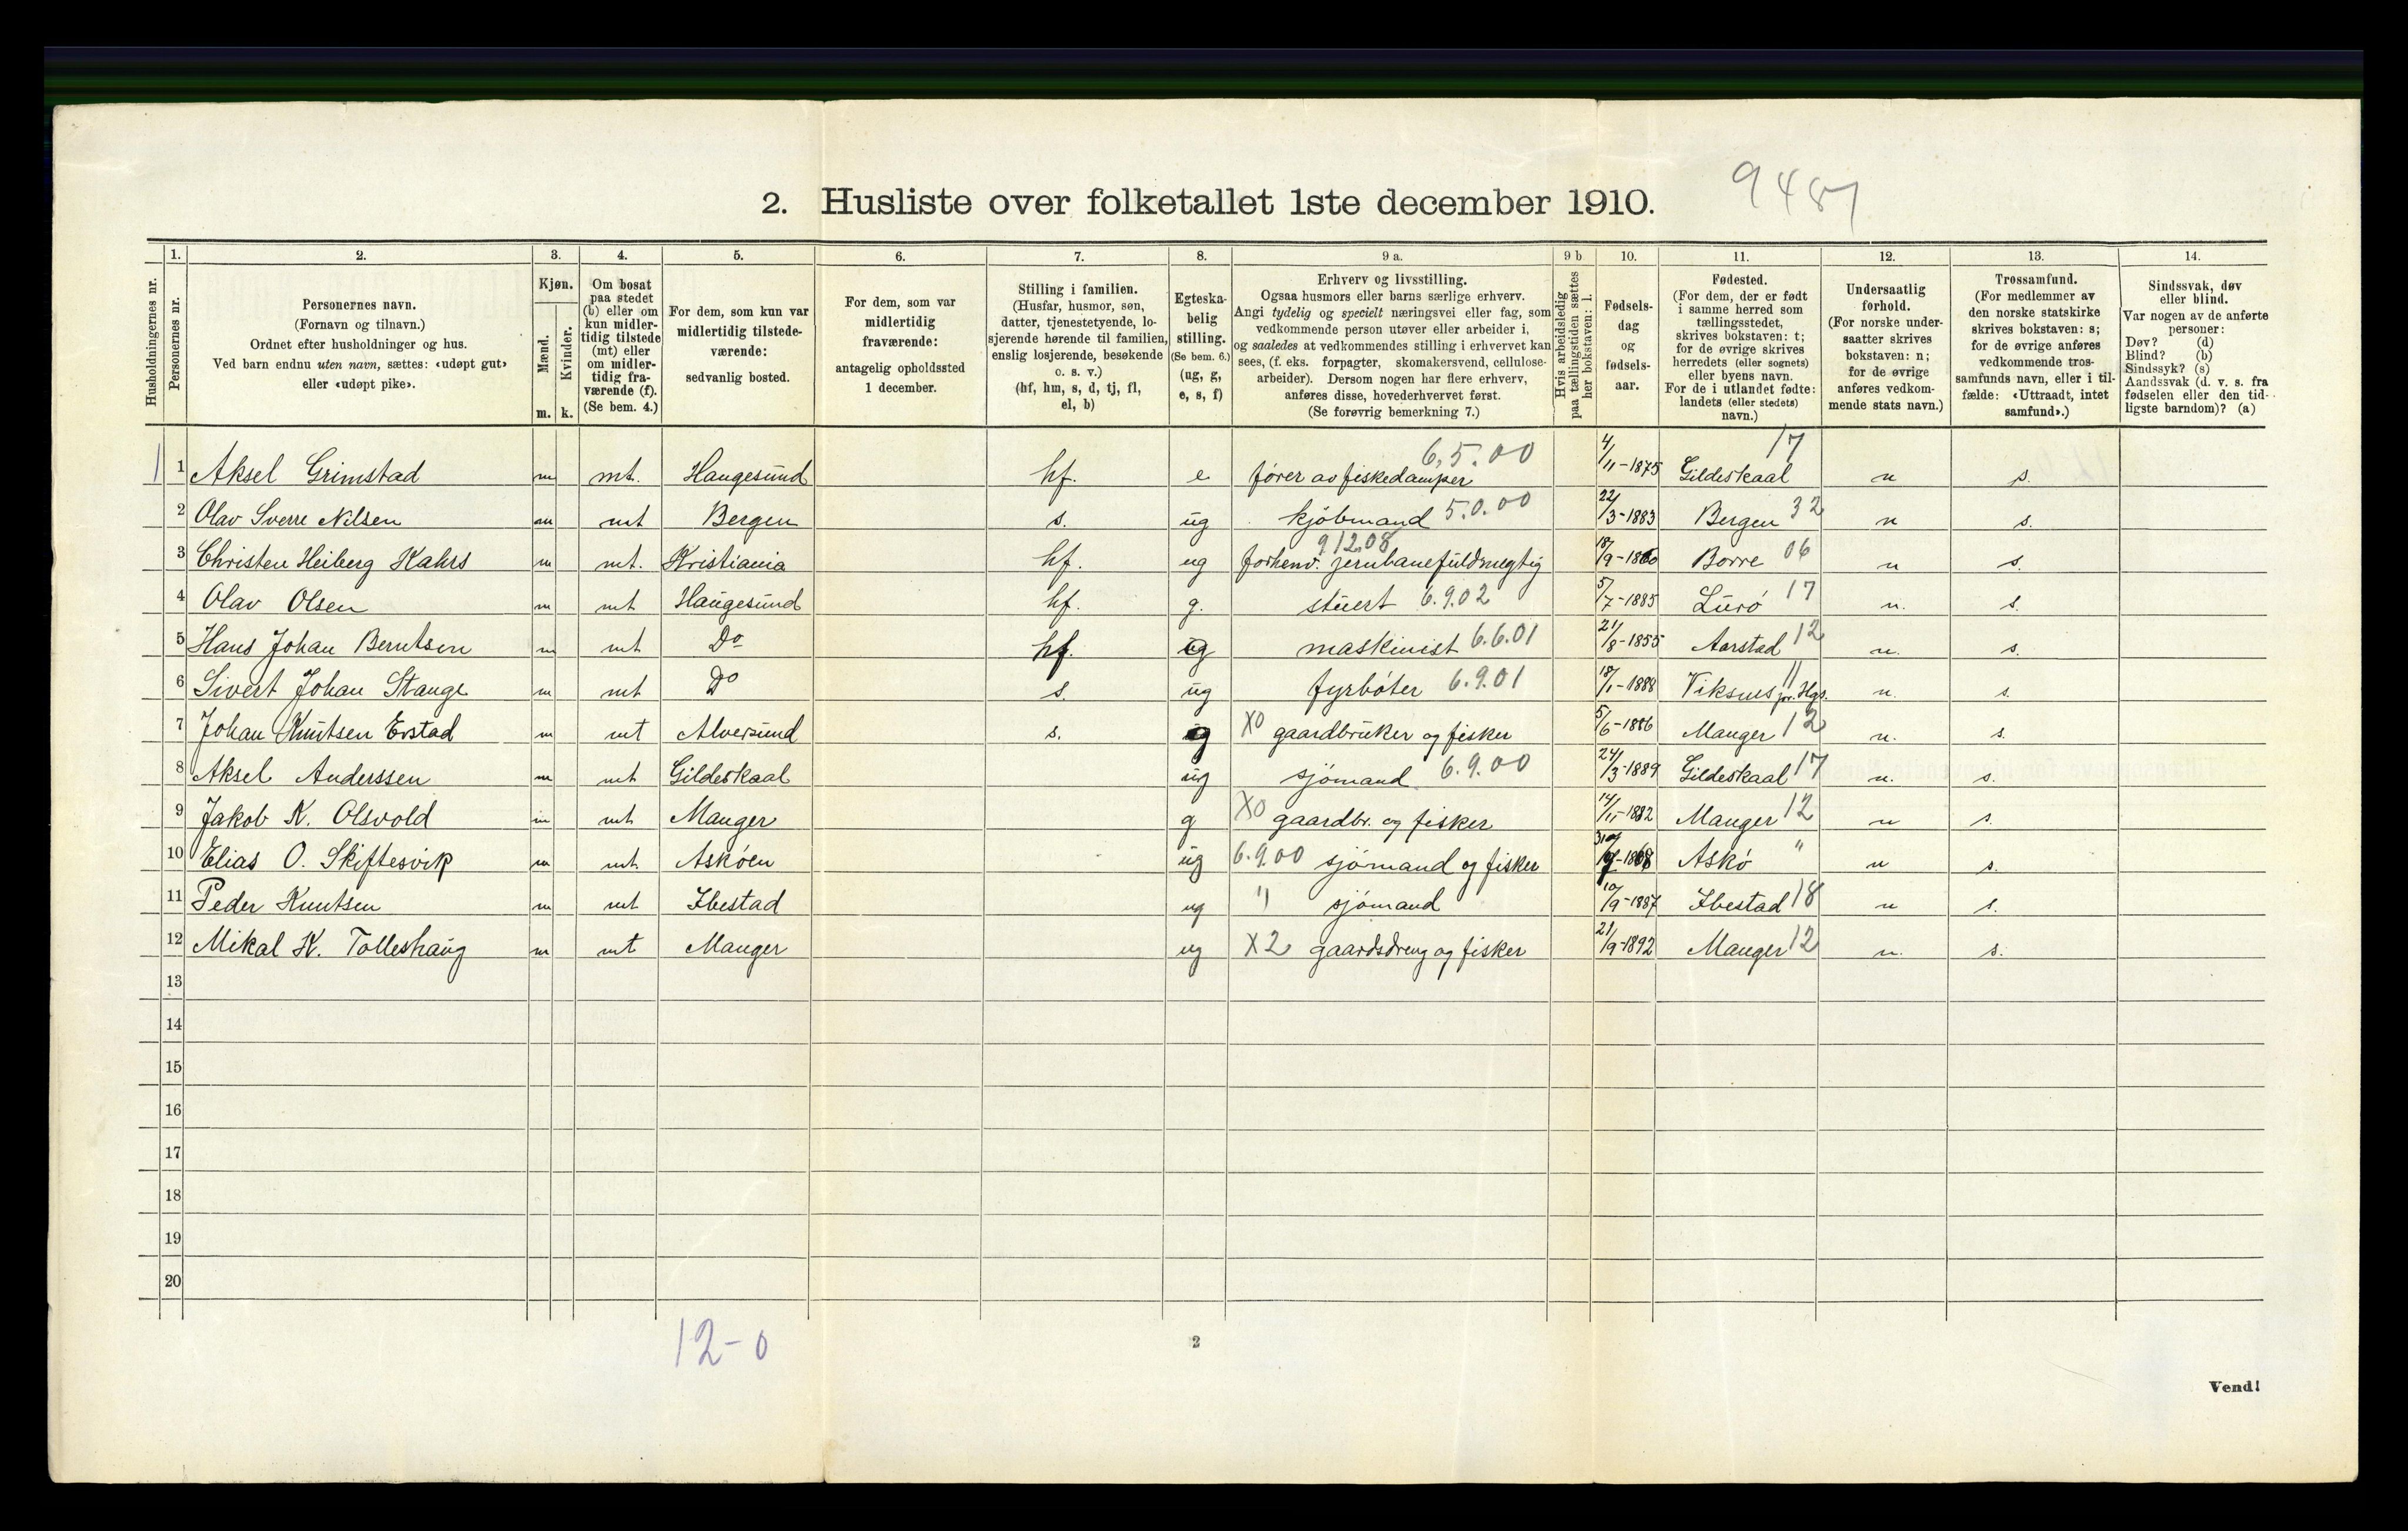 2. Husliste over folketallet 1ste december 1910. 9487
1. 2. 3. 4. 5. 6. 7. 8. 9 a. 9 b 10. 11. 12. 13. 14.
Husholdningernes nr.
Personernes nr.
Personernes navn.
(Fornavn og tilnavn.)
Ordnet efter husholdninger og hus.
Ved barn endnu uten navn, sættes: «udøpt gut»
eller «udøpt pike».
Kjøn.
Mænd.
Kvinder.
m. k.
Om bosat
paa stedet
(b) eller om
kun midler-
tidig tilstede
(mt) eller
om midler-
tidig fra-
værende (f).
(Se bem. 4.)
For dem, som kun var
midlertidig tilstede-
værende:
sedvanlig bosted.
For dem, som var
midlertidig
fraværende:
antagelig opholdssted
1 december.
Stilling i familien.
(Husfar, husmor, søn,
datter, tjenestetyende, lo-
sjerende hørende til familien,
enslig losjerende, besøkende
o. s. v.)
(hf, hm, s, d, tj, fl,
el, b)
Egteska-
belig
stilling.
(Se bem. 6.)
(ug, g,
e, s, f)
Erhverv og livsstilling.
Ogsaa husmors eller barns særlige erhverv.
Angi tydelig og specielt næringsvei eller fag, som
vedkommende person utøver eller arbeider i,
og saaledes at vedkommendes stilling i erhvervet kan
sees, (f. eks. forpagter, skomakersvend, cellulose-
arbeider). Dersom nogen har flere erhverv,
anføres disse, hovederhvervet først.
(Se forøvrig bemerkning 7.)
Hvis arbeidsledig
paa tællingstiden sættes
her bokstaven: l.
Fødsels-
dag
og
fødsels-
aar.
Fødested.
(For dem, der er født
i samme herred som
tællingsstedet,
skrives bokstaven: t;
for de øvrige skrives
herredets (eller sognets)
eller byens navn.
For de i utlandet fødte:
landets (eller stedets)
navn.)
Undersaatlig
forhold.
(For norske under-
saatter skrives
bokstaven: n;
for de øvrige
anføres vedkom-
mende stats navn.)
Trossamfund.
(For medlemmer av
den norske statskirke
skrives bokstaven: s;
for de øvrige anføres
vedkommende tros-
samfunds navn, eller i til-
fælde: «Uttraadt, intet
samfund».)
Sindssvak, døv
eller blind.
Var nogen av de anførte
personer:
Døv? (d)
Blind? (b)
Sindssyk? (s)
Aandssvak (d. v. s. fra
fødselen eller den tid-
ligste barndom)? (a)
1 1 Aksel Grimstad m mt. Haugesund hf. e fører av fiskedamper 6,5.00 4/11-1875 Gildeskaal 17 n s.
2 Olav Sverre Nilsen m mt Bergen s. ug kjöbmand 5.0.00 22/3-1883 Bergen 32 n s.
3 Christen Heiberg Kahrs m mt. Kristiania hf. ug forhenv. jernbanefuldmegtig 91208 18/9-1860 Borre 06 n s.
4 Olav Olsen m mt Haugesund hf. g. stuert 6.9.02 5/7-1885 Lurö 17 n. s.
5 Hans Johan Berntsen m mt Do hf. g maskinist 6.6.01 21/8-1855 Aarstad 12 n. s.
6 Sivert Johan Stange m mt Do s. ug fyrböter 6.9.01 18/1-1888 Viksnes pr. Hgs. 11 n. s.
7 Johan Knutsen Erstad m mt Alversund s. g X0 gaardbruker og fisker 5/6-1886 Manger 12 n. s.
8 Aksel Anderssen m mt Gildeskaal ug sjömand 6.9.00 24/3-1889 Gildeskaal 17 n. s.
9 Jakob K. Olsvold m mt Manger g X0 gaardbr. og fisker 14/11-1882 Manger 12 n s.
10 Elias O. Skiftesvik m mt. Asköen ug 6.9.00 sjömand og fisker Askö " n s.
11 Peder Knutsen m mt Ibestad ug " sjömand 10/9-1887 Ibestad 18 n s.
12 Mikal K. Tolleshaug m mt Manger ug X2 gaardsdreng og fisker 21/9-1892 Manger 12 n. s.
13
14
15
16
17
18
19
20
12-0
2
Vend!